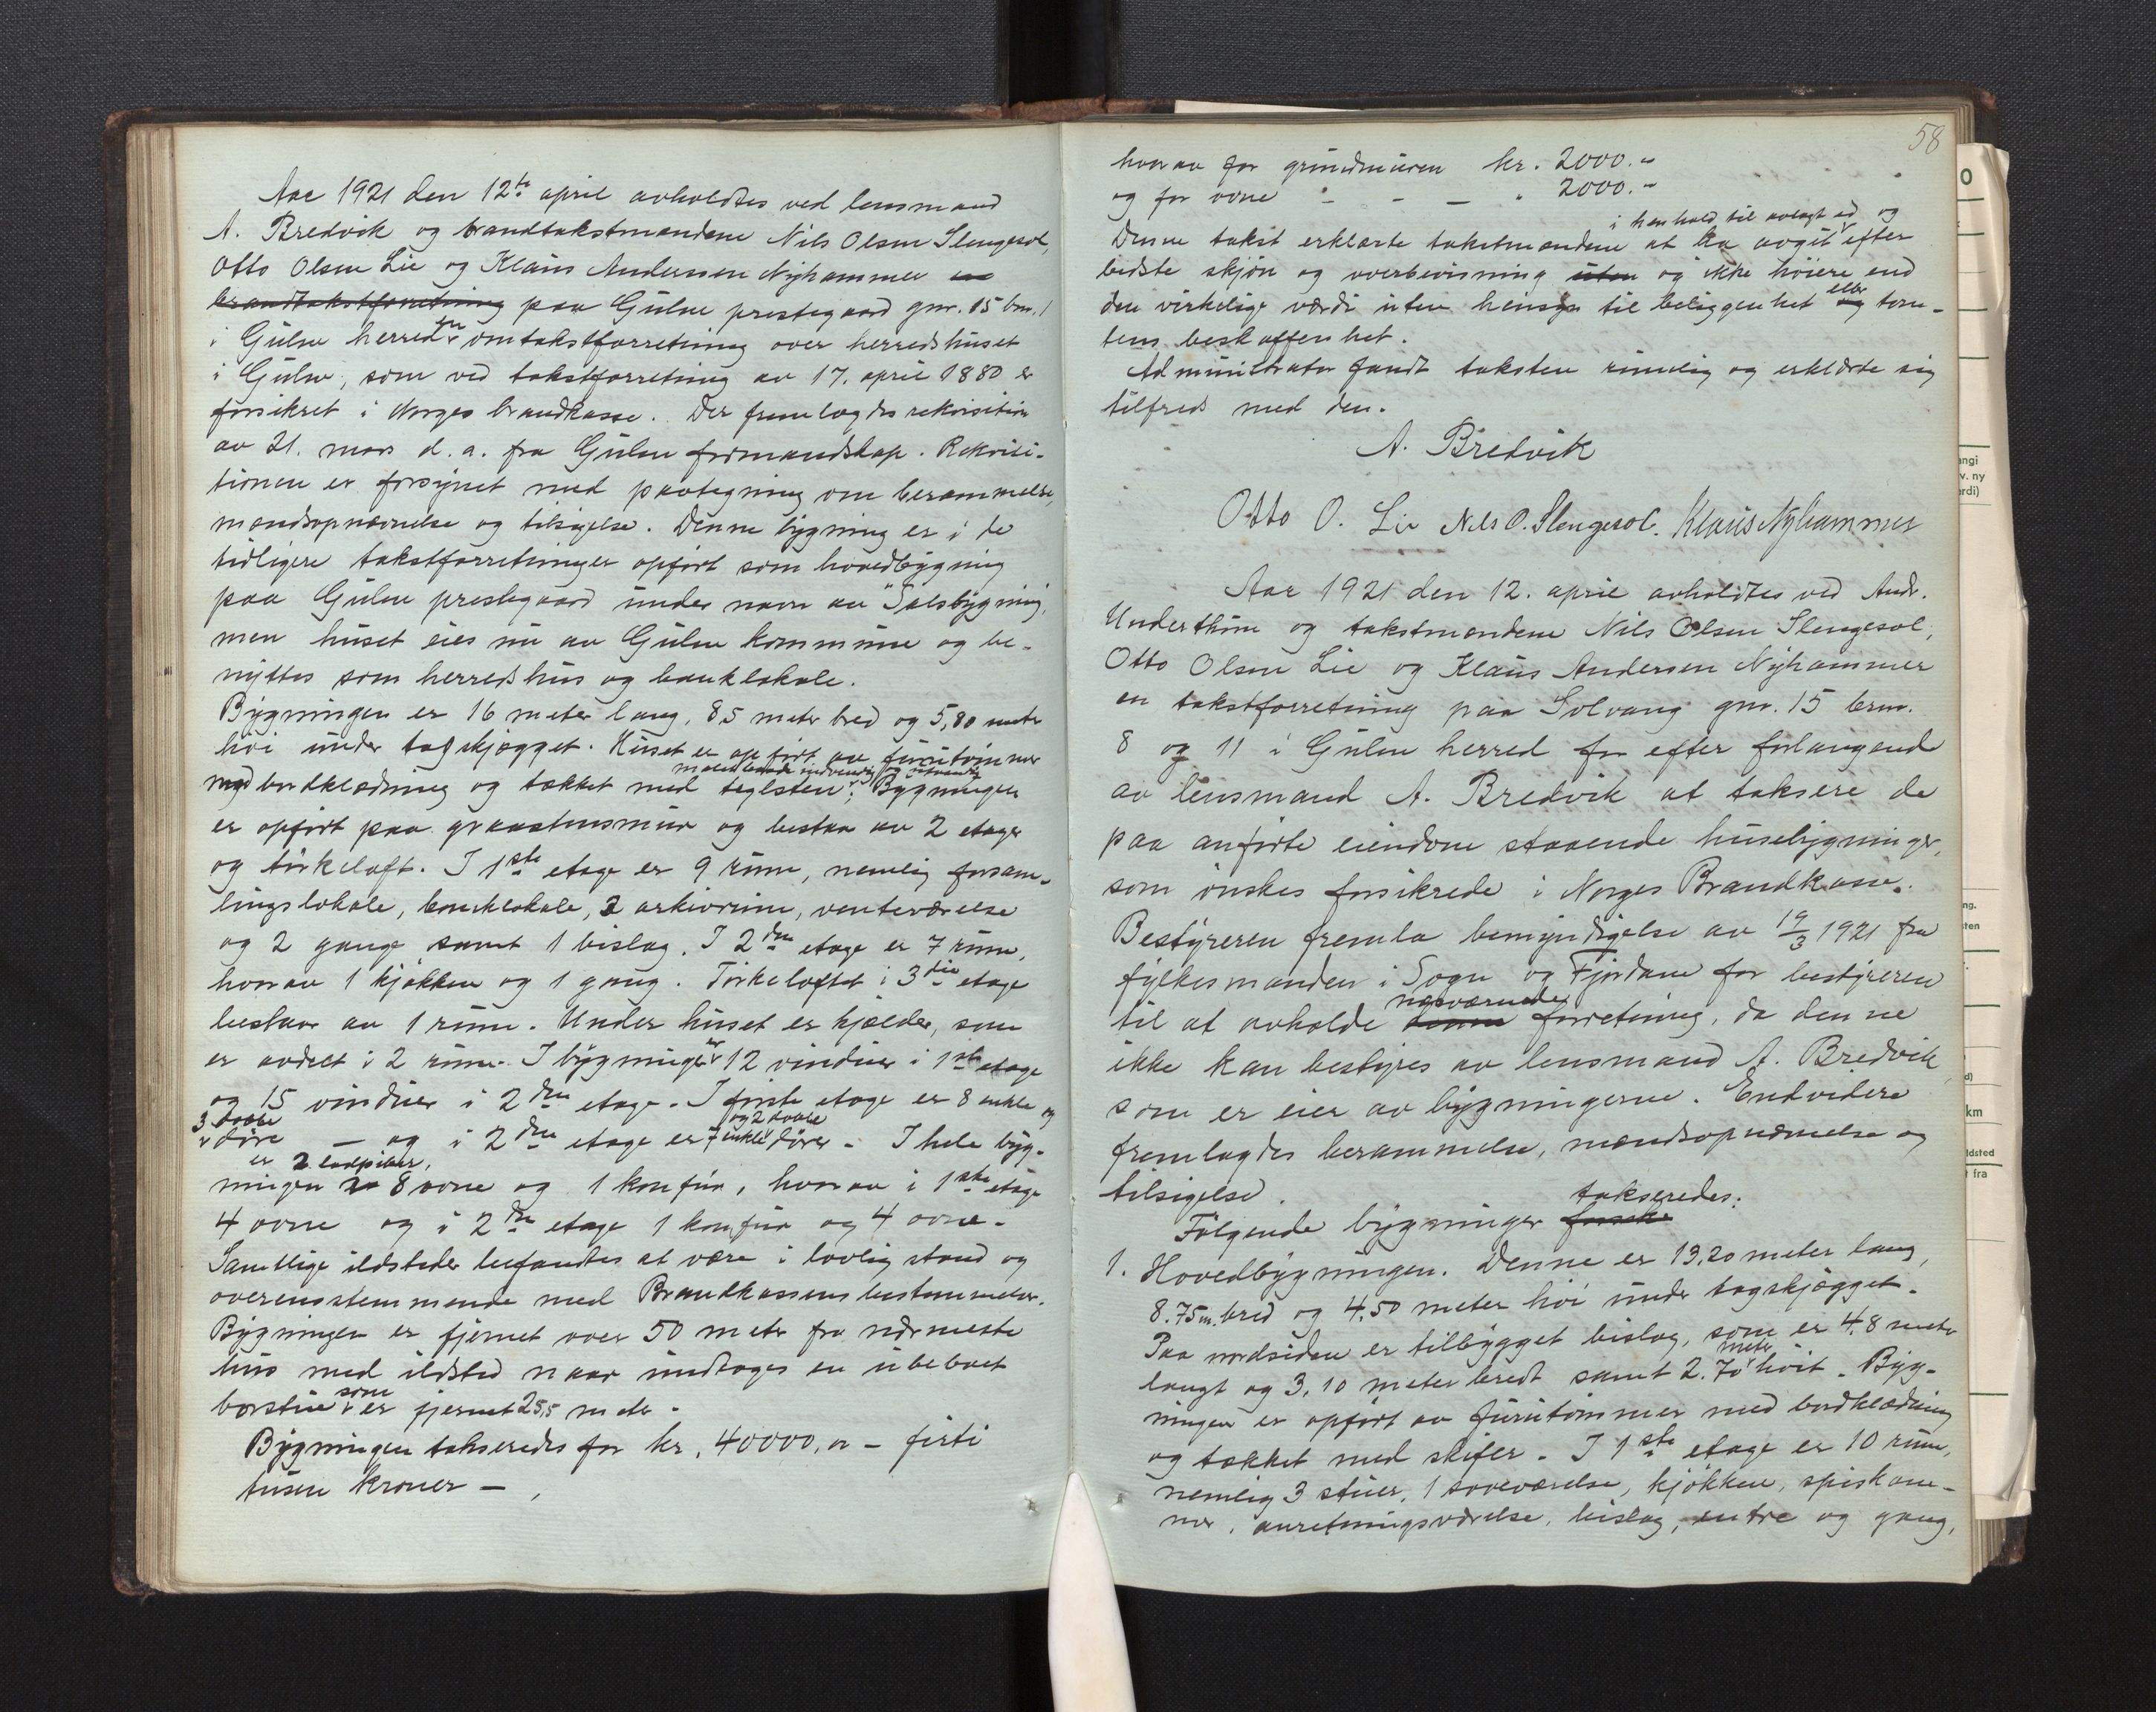 Aar 1921 den 12te april avholdtes ved lensmand
A. Bredvik og brandtakstmændene Nils Olsen Slengesol,
Otto Olsen Lie og Klaus Andersen Nyhammer en
brandtakstforretning paa Gulen prestegaard gnr. 15 bnr. 1
i Gulen herred en omtakstforretning over herredshuset
i Gulen, som ved takstforretning av 17. april 1880 er
forsikret i Norges brandkasse. Der fremlagdes rekvisition
av 21. mars d. a. fra Gulen formandskap. Rekvisi-
tionen er forsynet med paategning om berammelse,
mændsopnævnelse og tilsigelse. Denne bygning er i de
tidligere takstforretninger opført som hovedbygning
paa Gulen prestegaard under navn av "Salsbygning",
men huset eies nu av Gulen kommune og be-
nyttes som herredshus og banklokale.
Bygningen er 16 meter lang, 8,5 meter bred og 5,80 meter
høi under tagskjægget. Huset er opført av furutømmer
malet baade indvendig og utvendig
med bordklædning og tækket med teglsten; Bygningen
er opført paa graastensmur og bestaar av 2 etager
og tørkeloft. I 1ste etage er 9 rum, nemlig forsam-
lingslokale, banklokale, 3 arkivrum, venteværelse
og 2 gange samt 1 bislag. I 2den etage er 7 rum,
hvorav 1 kjøkken og 1 gang. Tørkeloftet i 3die etage
bestaar av 1 rum. Under huset er kjælder, som
er avdelt i 2 rum. I bygningen er 12 vinduer i 1ste etage
og 15 vinduer i 2den etage. I første etage er 8 enkle og
3 doble døre — og i 2den etage er 7 enkle og 2 doble dører. I hele byg-
er 2 ladpiber,
ningen 8 ovne og 1 komfur, hvorav i 1ste etage
4 ovne og i 2den etage 1 komfur og 4 ovne.
Samtlige ildsteder befandtes at være i lovlig stand og
overensstemmende med Brandkassens bestemmelser.
Bygningen er fjernet over 50 meter fra nærmeste
hus med ildsted naar undtages en ubeboet
borstue som er fjernet 25,5 meter.
Bygningen takseredes for kr. 40000,00 — førti
tusen kroner —
58
hvorav for grundmuren kr. 2000.-
og for ovne - - — " 2000.-
i henhold til avlagt ed og
Denne takst erklærte takstmændene at ha avgit efter
bedste skjøn og overbevisning uten og ikke høiere end
den virkelige værdi uten hensyn til beliggenhet og eller tom-
tens beskaffenhet.
Administrator fandt taksten rimelig og erklærte sig
tilfreds med den.
A. Bredvik
Otto O. Lie Nils O. Slengesol. Klaus Nyhammer
Aar 1921 den 12. april avholdtes ved Andr.
Underthun og takstmændene Nils Olsen Slengesol,
Otto Olsen Lie og Klaus Andersen Nyhammer
en takstforretning paa Solvang gnr. 15 brnr.
8 og 11 i Gulen herred for efter forlangend
av lensmand A. Bredvik at taksere de
paa anførte eiendom staaende husebygninger,
som ønskes forsikrede i Norges Brandkasse.
Bestyreren fremla bemyndigelse av 19/3 1921 fra
fylkesmanden i Sogn og Fjordane for bestyreren
til at avholde denne nærværende forretning, da denne
ikke kan bestyres av lensmand A. Bredvik,
som er eier av bygningerne. Endvidere
fremlagdes berammelse, mændsopnævnelse og
tilsigelse.
Følgende bygninger takseredes:
1. Hovedbygningen. Denne er 13,20 meter lang,
8.75 m. bred og 4,50 meter høi under tagskjægget.
Paa nordsiden er tilbygget bislag, som er 4,8 meter
langt og 3,10 meter bredt samt 2.70 meter høit. Byg-
ningen er opført av furutømmer med bordklædning
og tækket med skifer. I 1ste etage er 10 rum,
nemlig 3 stuer, 1 soveværelse, kjøkken, spiskam-
mer, anretningsværelse, bislag, entre og gang,